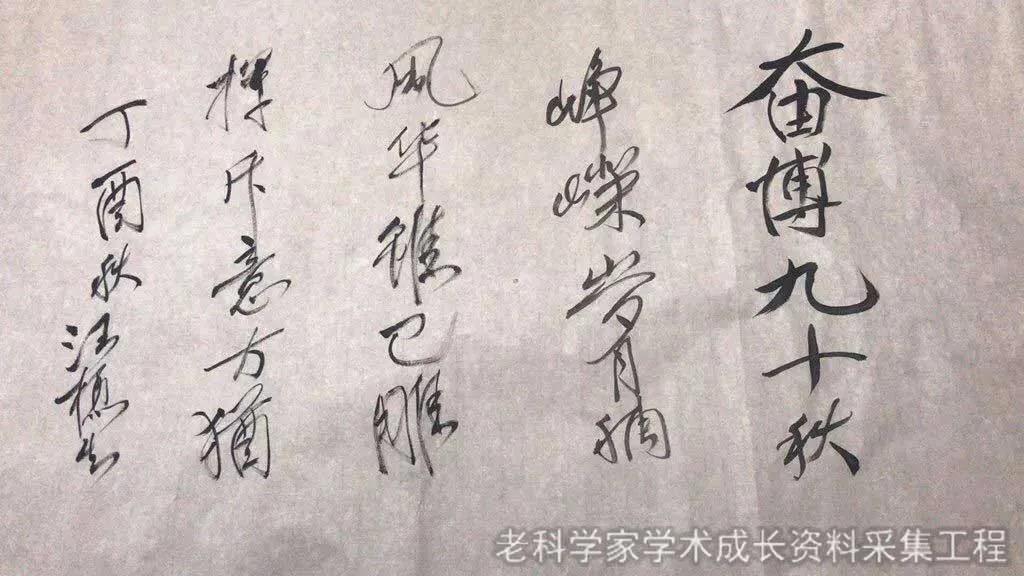 奋博九十秋
峥嵘岁月稠
风华虽已雕
挥斥意方猶
丁酉秋 汪樵生
老科学家学术成长资料采集工程